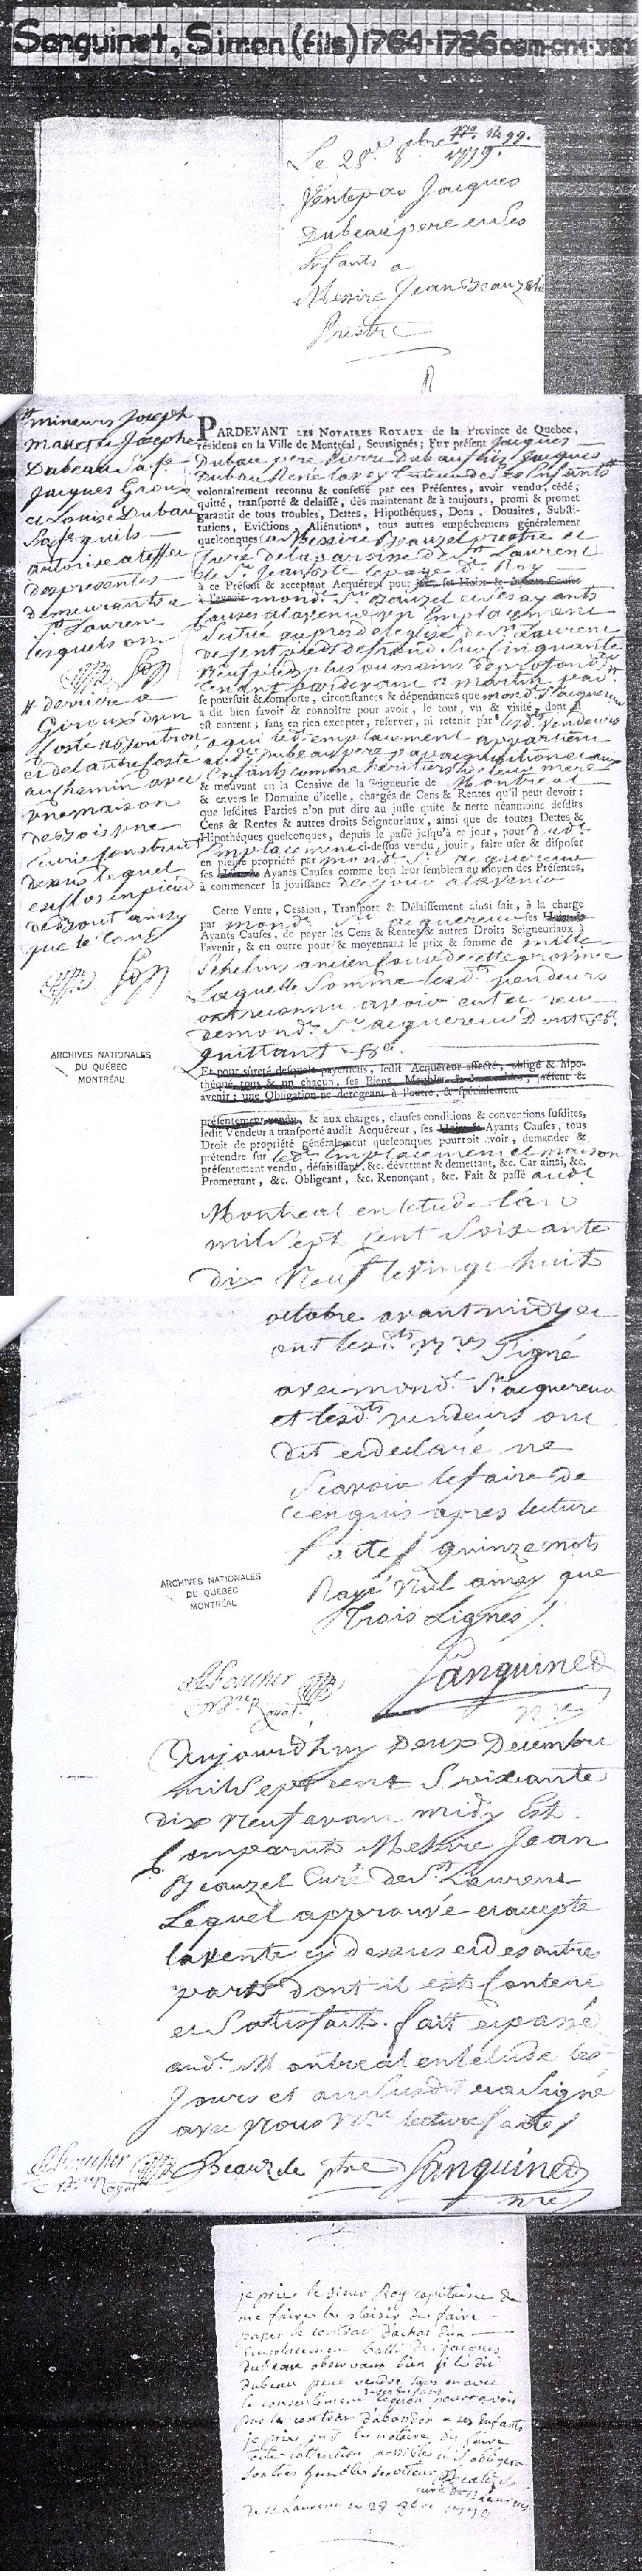 Sanguinet, Simon (fils) 1764-1786
No. 1499.
Le 28e 8bre 1779.
Vente par Jacques
Dubeau pere et ses
Enfants a
Messire Jean Beauzele
Prestre
mineurs Joseph
Dubeau Sa fe
Jacques Giroux
et Louise Dubau
Sa fe quils
autorise a leffet
des presentes
demeurants a
St Laurent
lesquels ont
PARDEVANT LES NOTAIRES ROYAUX de la Province de Quebec,
résidens en la Ville de Montréal, Soussignés; FUT présent Jacques
Dubau pere Pierre Dubau fils Jacques
Dubau René
volontairement reconnu & confessé par ces Présentes, avoir vendu, cédé,
quitté, transporté & delaissé, dès maintenant & à toujours, promi & promet
garantir de tous troubles, Dettes, Hipothéques, Dons, Douaires, Substi-
tutions, Evictions, Aliénations, tous autres empêchemens généralement
quelconques a Messire Beauzel prestre et
Curé de la paroisse de St Laurent
le Sr Jean Bte lepage dt Roy
à ce Présent & acceptant Acquéreur pour
mond. Sr Bauzel et ses ayants
causes a lavenir un Emplacement
Situé aupres de leglise de St Laurent
de sent pieds de front Sur Cinquante
neuf pieds plus ou moins de profondeur
tenant par devant a martin
se poursuit & comporte, circonstances & dépendances que mond. Sr acquereur
a dit bien savoir & connoître pour avoir, le tout, vu & visité, dont il
est content, sans en rien excepter, reserver, ni retenir par lesd. Vendeurs
a qui led. emplacement appartien
aud. Dubeau pere par acquisition et aux
Enfants comme heritiers de leur mere
& mouvant en la Censive de la Seigneurie de Montreal
& envers le Domaine d'icelle, chargés de Cens & Rentes qu'il peut devoir;
que lesdites Parties n'on put dire au juste quite & nette néanmoins desdits
Cens & Rentes & autres droits Seigneuriaux, ainsi que de toutes Dettes &
Hipothéques quelconques, depuis le passé jusqu'à ce jour, pour dudt
Emplacement ci-dessus vendu, jouir, faire user & disposer
en pleine propriété par mond. Sr acquereur
ses Ayants Causes comme bon leur semblera au moyen des Présentes,
à commencer la jouissance de ce jour a lavenir
# derriere a
Giroux dun
Costé a
et de lautre Costé
au chemin avec
une maison
de bois une
Ecurie Construit
dessus lequel
est clos en pieux
debout ainsy
que le tout
Cette Vente, Cession, Transport & Délaissement ainsi fait, à la charge
par mond. Sr acquereur ses
Ayants Causes, de payer les Cens & Rentes & autres Droits Seigneuriaux à
l'avenir, & en outre pour & moyennant le prix & somme de mille
Schelins ancien cours de cette province
Laquelle Somme lesd. vendeurs
ont reconnu avoir eut et reçu
de mond. Sr acquereur Dont &c.
quittant &c.
ARCHIVES NATIONALES
DU QUÉBEC
MONTRÉAL
Et pour sûreté desquels payemens, ledit Acquéreur affecté, obligé & hipo-
théqué, tous & un chacun, ses Biens, Meubles & Immeubles, présent &
avenir; une Obligation ne derogeant à l'autre, & spécialement
présentement vendu, & aux charges, clauses conditions & conventions susdites,
ledit Vendeur a transporté audit Acquéreur, ses Ayants Causes, tous
Droit de propriété généralement quelconques pourroit avoir, demander &
prétendre sur led. Emplacement et maison
présentement vendu, défaisissant, &c. dévettant & demettant, &c. Car ainsi, &c.
Promettant, &c. Obligeant, &c. Renonçant, &c. Fait & passé audt
Montreal en letude lan
mil Sept Cent Soixante
dix Neuf le vingt huit
octobre avant midy et
ont lesdts nres Signé
avec mond. Sr acquereur
et lesdts vendeurs ont
dit et declaré ne
Scavoir le faire de
ce enquis apres lecture
faite / quinze mots
Rayé Nul ainsy que
trois Lignes /.
ARCHIVES NATIONALES
DU QUÉBEC
MONTRÉAL
Foucher
Nre Royal
Sanguinet
Nre
Aujourdhuy Deux Decembre
mil Sept cent Soixante
dix Neuf avant midy Est
Comparut Messire Jean
Beauzel Curé de St Laurent
Lequel approuvé et accepte
la vente cy dessus et des autre
parts dont il est Content
et Satisfait. fait et passé
audt Montreal en letude les
Jours et an Susdit et a Signé
avec nous nre lecture faite /
Foucher
Nre Royal
Beauzele ptre
Sanguinet
nre
je prie le sieur Roy capitaine de
me faire le plaisir de faire
passer le contrat dachat dun
Emplacement batti de jacques
dubeau observant bien si le dit
dubeau peut vendre sans ou avec
le consentement de ses enfans
par le contrat dabandon a ses Enfants
je prie mr le notaire dy faire
toute lattention possible et obligera
son tres humble serviteur Beauzele
curé de St Laurent
de St Laurent ce 28 8bre 1779